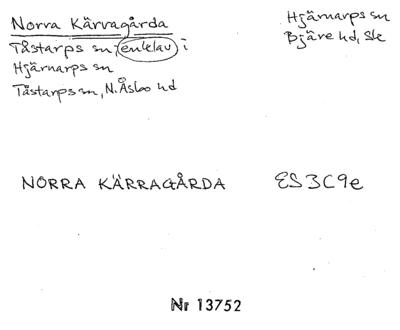 Norra Kärvagårda
Tåstarps sn, enklav i
Hjärnarps sn
Tåstarps sn, N. Åsbo hd
Hjärnarps sn
Bjäre hd, Sk
NORRA KÄRRAGÅRDA
ES3C9e
Nr 13752